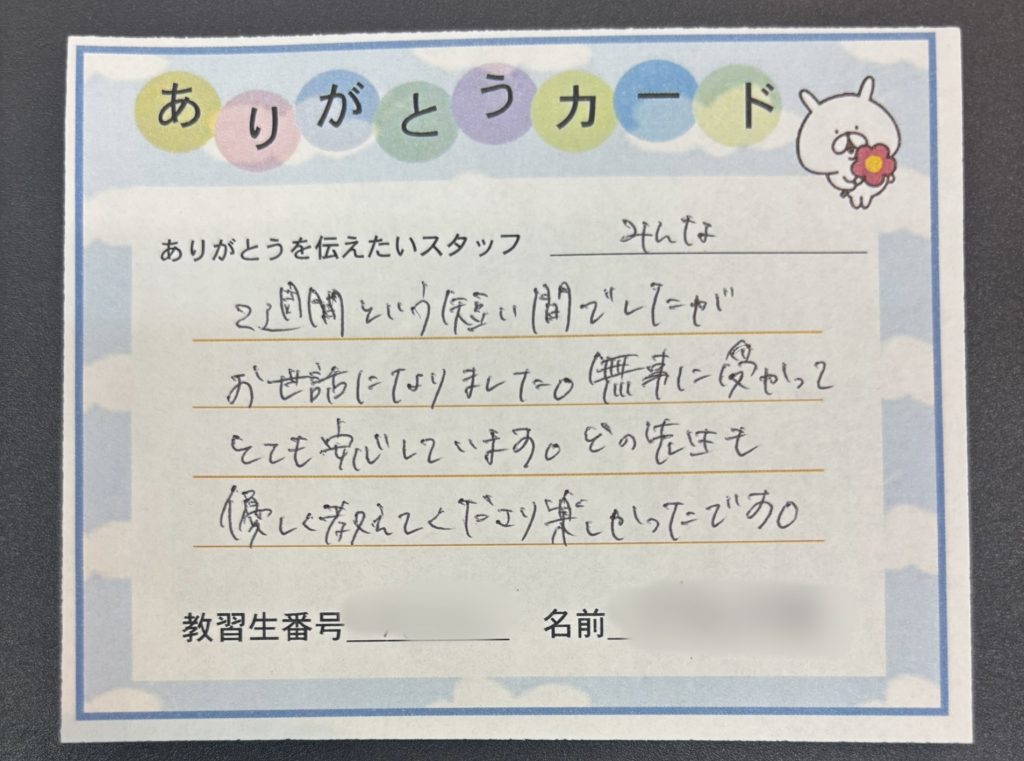 ありがとうカード
ありがとうを伝えたいスタッフ みんな
2週間という短い間でしたが
お世話になりました。無事に受かって
とても安心しています。どの先生も
優しく教えてくださり楽しかったです。
教習生番号 名前